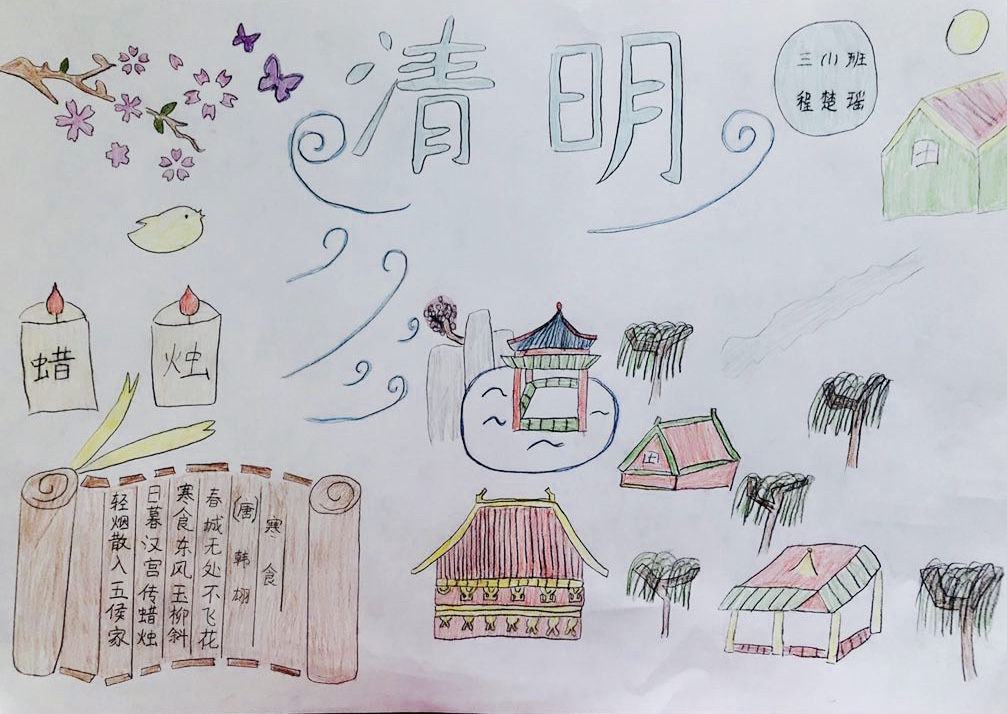 清明
三(1)班
程楚瑶
蜡
烛
寒食
(唐)韩翃
春城无处不飞花
寒食东风玉柳斜
日暮汉宫传蜡烛
轻烟散入五侯家